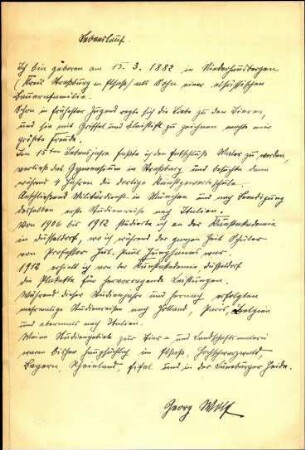 Lebenslauf.
Ich bin geboren am 15. 3. 1882 in Niederhausbergen
(Kreis Straßburg in Elsaß) als Sohn einer elsässischen
Bauernfamilie.
Schon in frühester Jugend regte sich die Liebe zu den Tieren,
und sie mit Griffel und Bleistift zu zeichnen war meine
größte Freude.
Im 15ten Lebensjahre faßte ich den Entschluß Maler zu werden,
verließ das Gymnasium in Straßburg und besuchte dann
während Jahren die dortige Kunstgewerbeschule.
Anschließend Militärdienst in München und nach Beendigung
desselben erste Studienreise nach Italien.
Von 1906 bis 1912 studierte ich an der Kunstakademie
in Düsseldorf, wo ich während der ganzen Zeit Schüler
von Professor Jul. Paul Junghanns war.
1912 erhielt ich von der Kunstakademie Düsseldorf
die Plakette für hervorragende Leistungen.
Während dieser Studienjahre und hernach erfolgten
mehrmalige Studienreisen nach Holland, Paris, Belgien
und abermals nach Italien.
Meine Studiengebiete zur Tier- und Landschaftsmalerei
waren bisher hauptsächlich im Elsaß, Hochschwarzwald,
Bayern, Rheinland, Eifel und in der Lüneburger Heide.
Georg Wolf